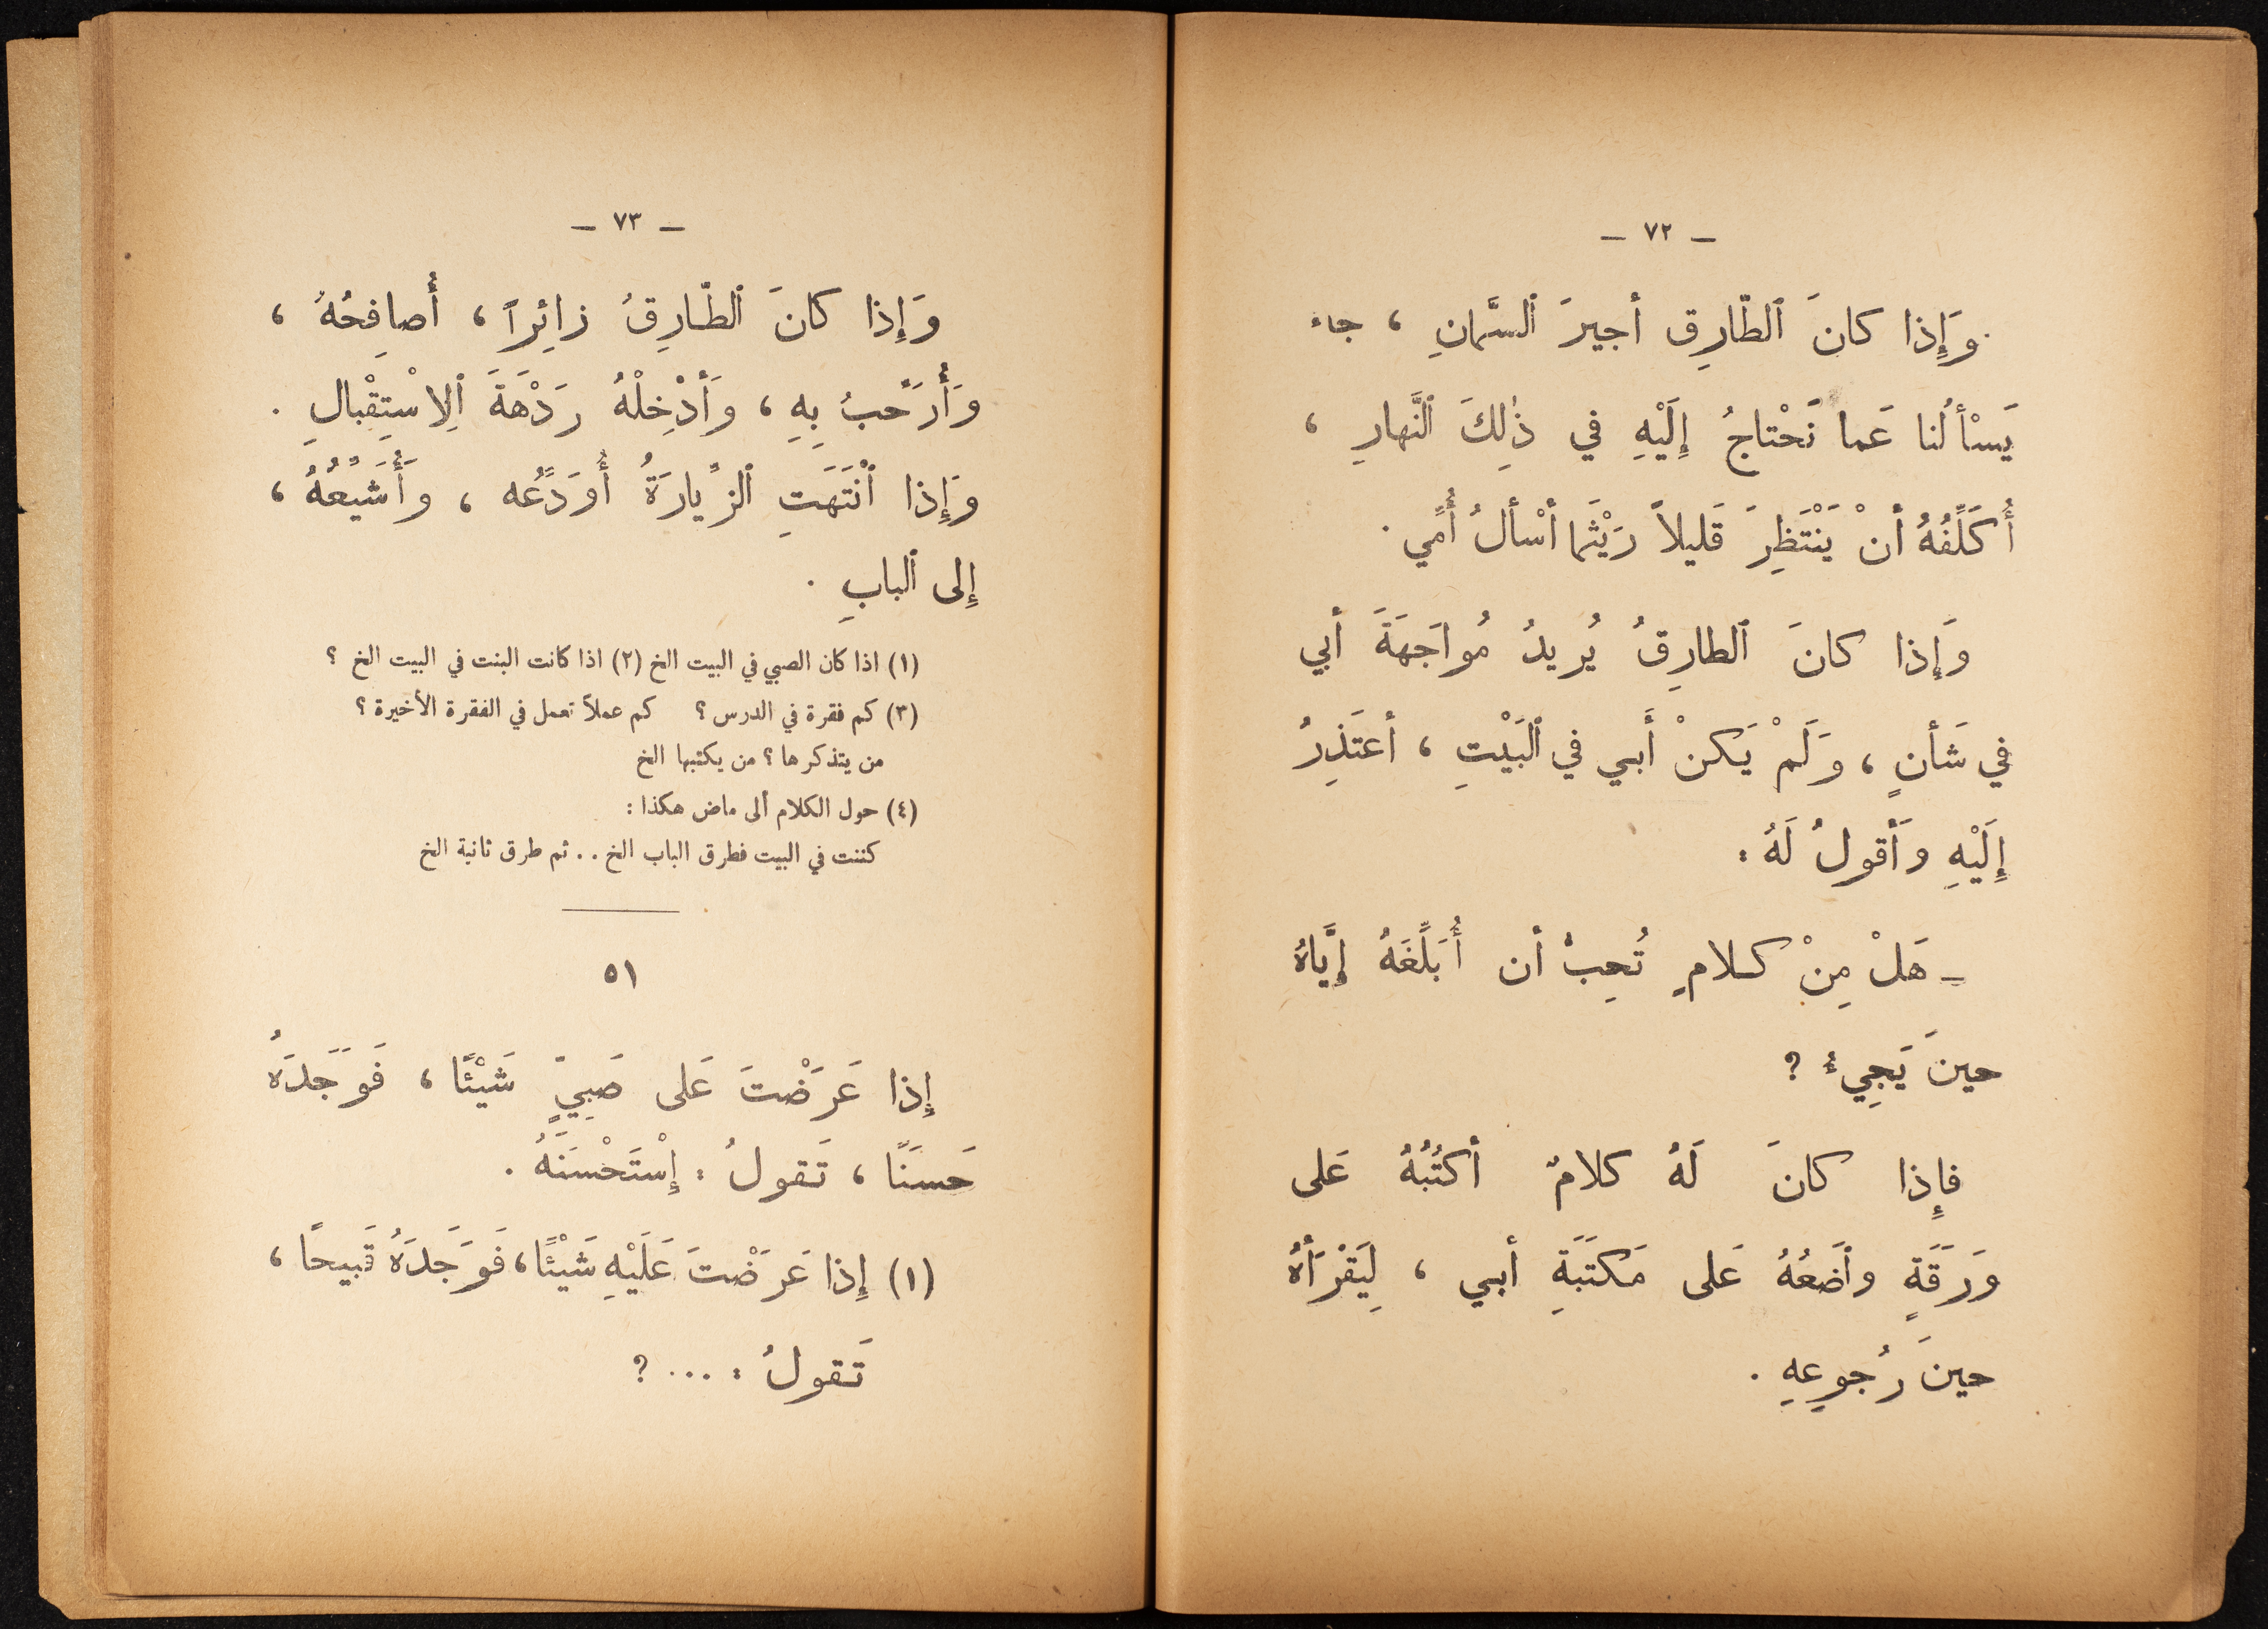 — ٧٢ —
وَإِذا كانَ ٱلطّارِق أجيرَ ٱلسَّمانِ ، جاء
يَسْألُنا عَما نَحْتاجُ إِلَيْهِ في ذٰلِكَ ٱلنَّهارِ ،
أُكَلِّفُهُ أنْ يَنْتَظِرَ قَليلاً رَيْثَما أسْألُ أُمّي .
وَإِذا كانَ ٱلطارِقُ يُريدُ مُواجَهَةَ أبي
في شَأنٍ ، وَلَمْ يَكنْ أَبي في ٱلبَيْتِ ، أعتَذِرُ
إِلَيْهِ وَأقولُ لَهُ :
— هَلْ مِنْ كلامٍ تُحِبُّ أن أُبَلِّغَهُ إِيَّاهُ
حينَ يَجِيءُ ؟
فإِذا كانَ لَهُ كلامٌ أكتُبُهُ عَلى
وَرَقَةٍ وأضَعُهُ عَلى مَكتَبَةِ أبي ، لِيَقْرَأهُ
حينَ رُجوعِهِ .
— ٧٣ —
وَإِذا كانَ ٱلطّارِقُ زائِراً ، أُصافِحُهُ ،
وَأُرَحّبُ بِهِ ، وَأُدْخِلْهُ رَدْهَةَ ٱلِاسْتِقْبالِ .
وَإِذا ٱنْتَهَتِ ٱلزِّيارَةُ أُوَدِّعُه ، وَأُشَيِّعُهُ ،
إِلى ٱلبابِ .
(١) اذا كان الصبي في البيت الخ (٢) اذا كانت البنت في البيت الخ ؟
(٣) كم فقرة في الدرس ؟ كم عملاً تعمل في الفقرة الأخيرة ؟
من يتذكرها ؟ من يكتبها الخ
(٤) حول الكلام ألى ماض هكذا :
كننت في البيت فطرق الباب الخ . . ثم طرق ثانية الخ
٥١
إِذا عَرَضْتَ عَلى صَبِيٍّ شَيْئًا ، فَوَجَدَهُ
حَسَنًا ، تَقولُ : إِسْتَحْسَنَهُ .
(١) إِذا عَرَضْتَ عَلَيْهِ شَيْئًا ، فَوَجَدَهُ قَبيحًا ،
تَقولُ : ... ؟